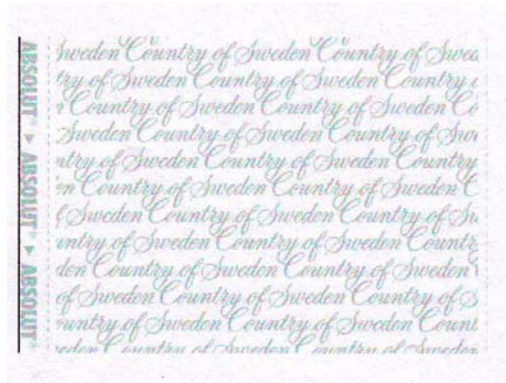 ABSOLUT ABSOLUT ABSOLUT
Sweden Country of Sweden Country of Swed
try of Sweden Country of Sweden Country
Country of Sweden Country of Sweden Co
Sweden Country of Sweden Country of Swe
ntry of Sweden Country of Sweden Country
en Country of Sweden Country of Sweden C
f Sweden Country of Sweden Country of Sw
untry of Sweden Country of Sweden Countr
den Country of Sweden Country of Sweden
of Sweden Country of Sweden Country of S
ountry of Sweden Country of Sweden Count
eden Country of Sweden Country of Sweden